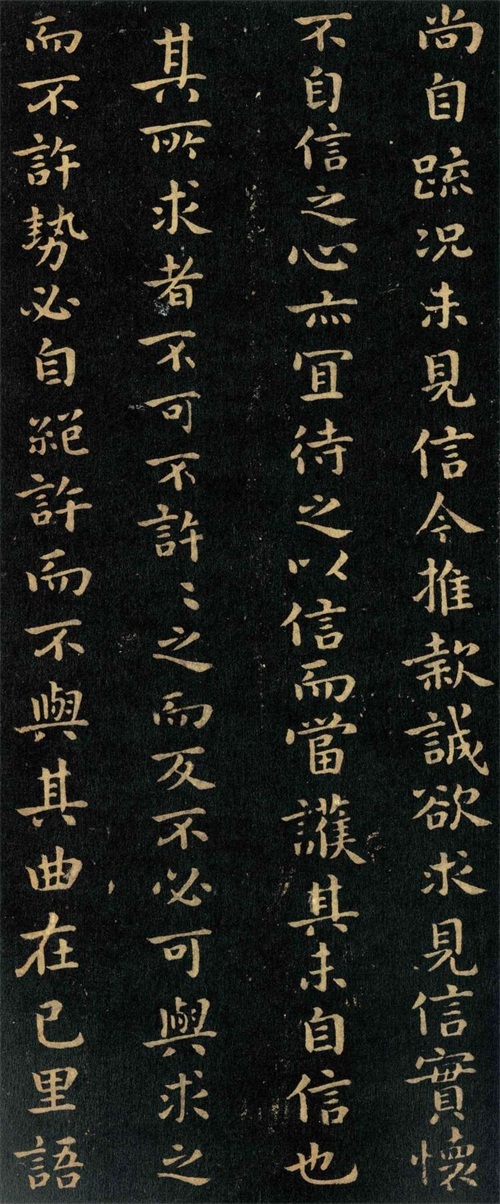 尚自疏况未見信今推款誠欲求見信實懷
不自信之心亦冝待之以信而當護其未自信也
其所求者不可不許〻之而反不必可與求之
而不許勢必自絕許而不與其曲在己里語